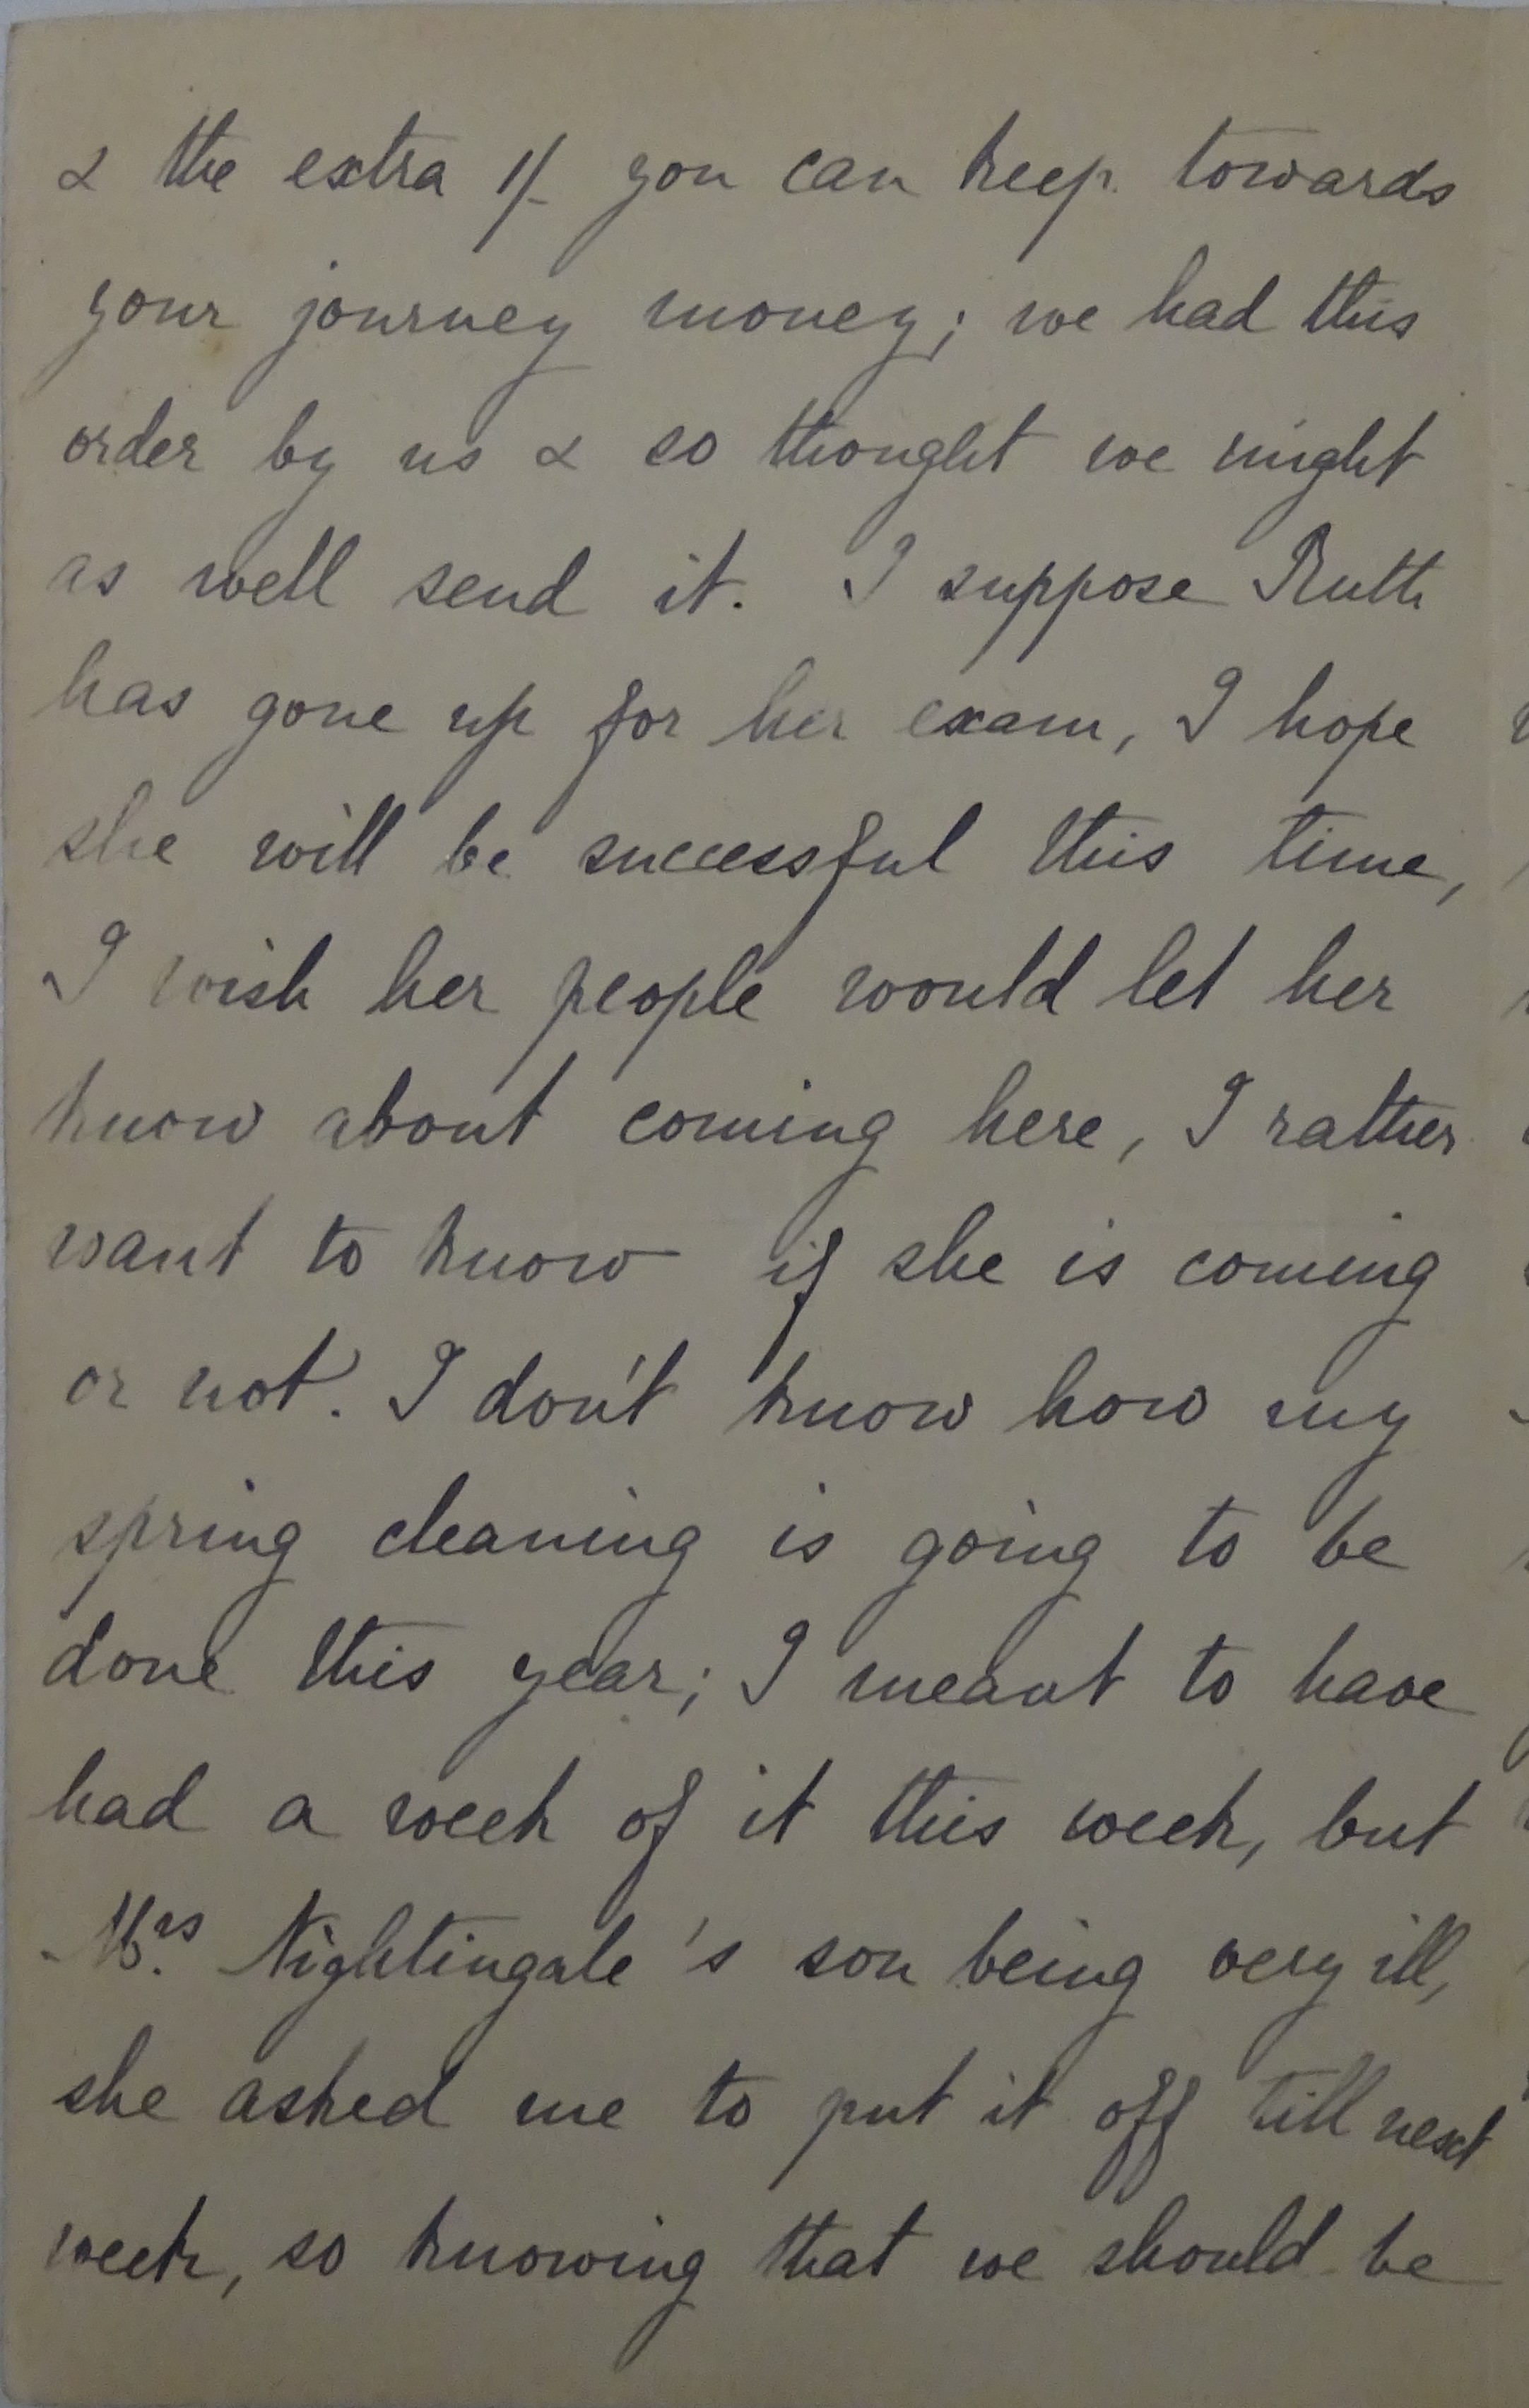 & the extra 1/- you can keep towards
your journey money; we had this
order by us & so thought we might
as well send it. I suppose Ruth
has gone up for her exam, I hope
she will be successful this time,
I wish her people would let her
know about coming here, I rather
want to know if she is coming
or not. I don't know how my
spring cleaning is going to be
done this year; I meant to have
had a week of it this week, but
Mrs. Nightingale's son being very ill,
she asked me to put it off till next
week, so knowing that we should be